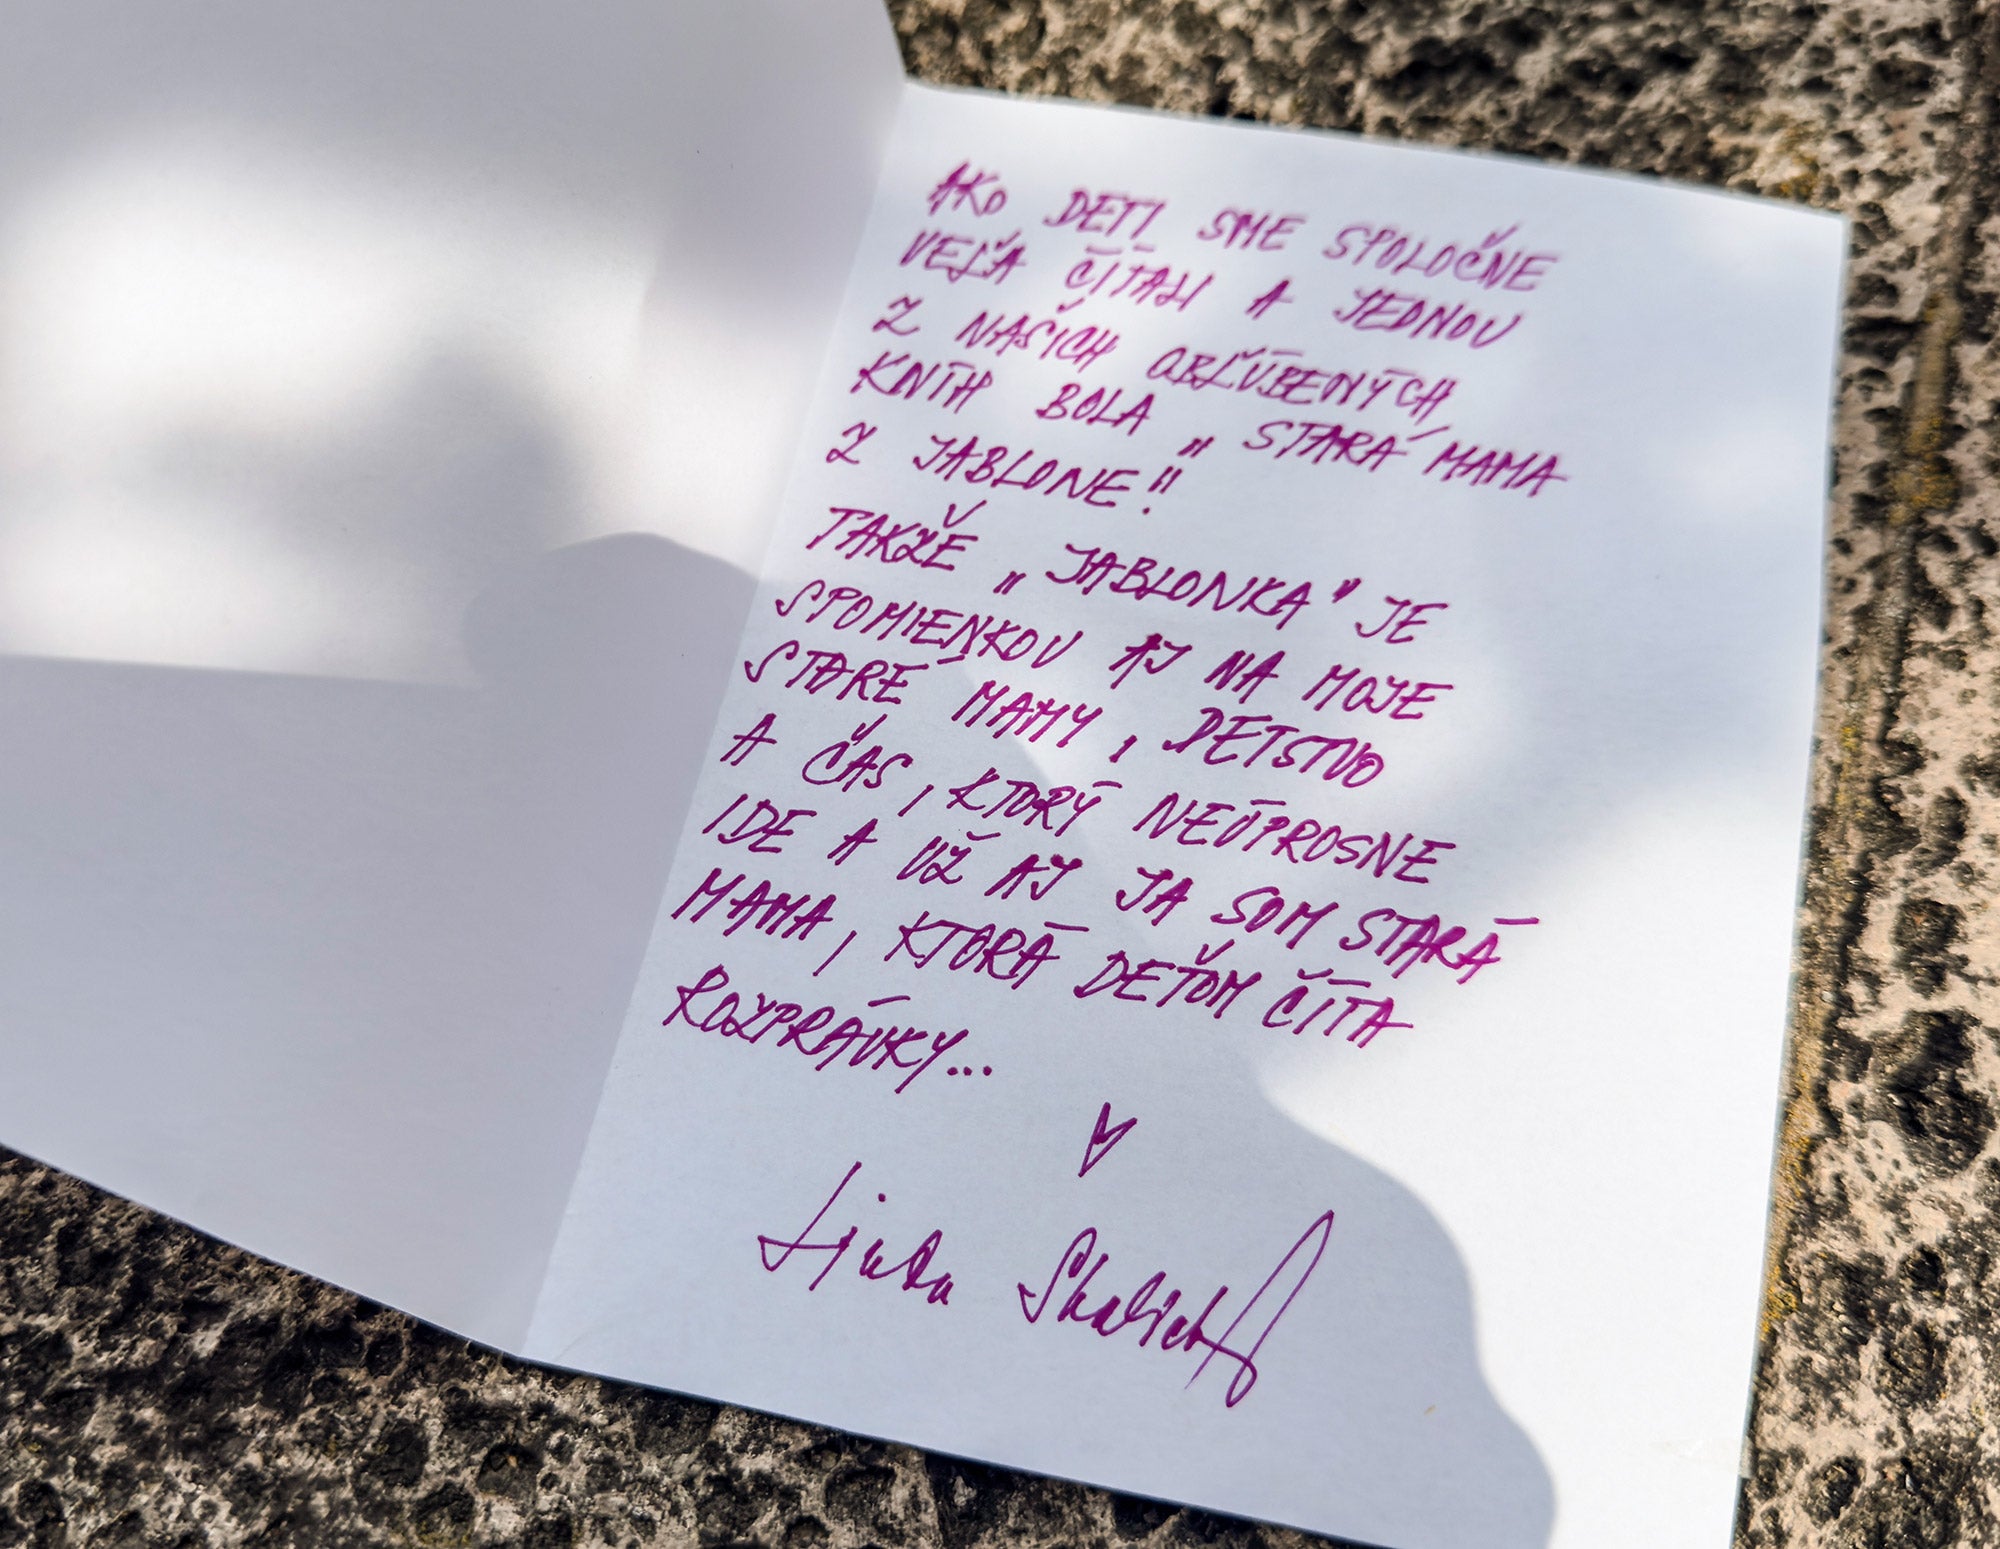 AKO DETI SME SPOLOČNE
VEĽA ČÍTALI A JEDNOU
Z NAŠICH OBĽÚBENÝCH
KNÍH BOLA „STARÁ MAMA
Z JABLONE!"
TAKŽE „JABLONKA" JE
SPOMIENKOU AJ NA MOJE
STARÉ MAMY, DETSTVO
A ČAS, KTORÝ NEÚPROSNE
IDE A UŽ AJ JA SOM STARÁ
MAMA, KTORÁ DEŤOM ČÍTA
ROZPRÁVKY...
Ljuba